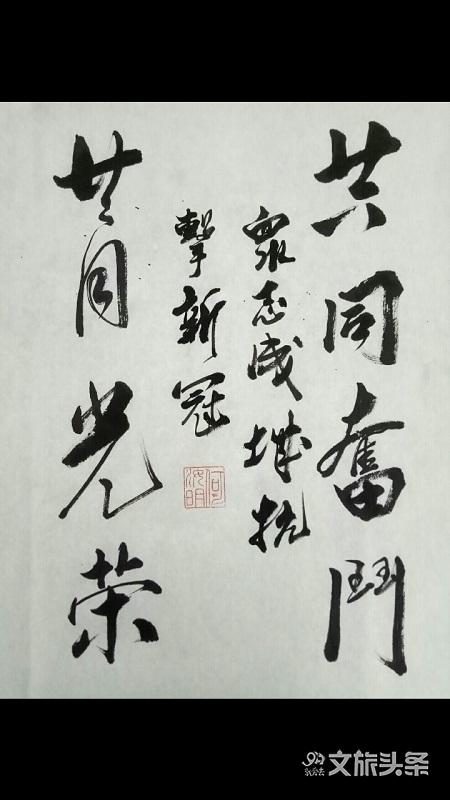 共同奮鬥
衆志成城抗
擊新冠
何汝明
共同光荣
文旅头条